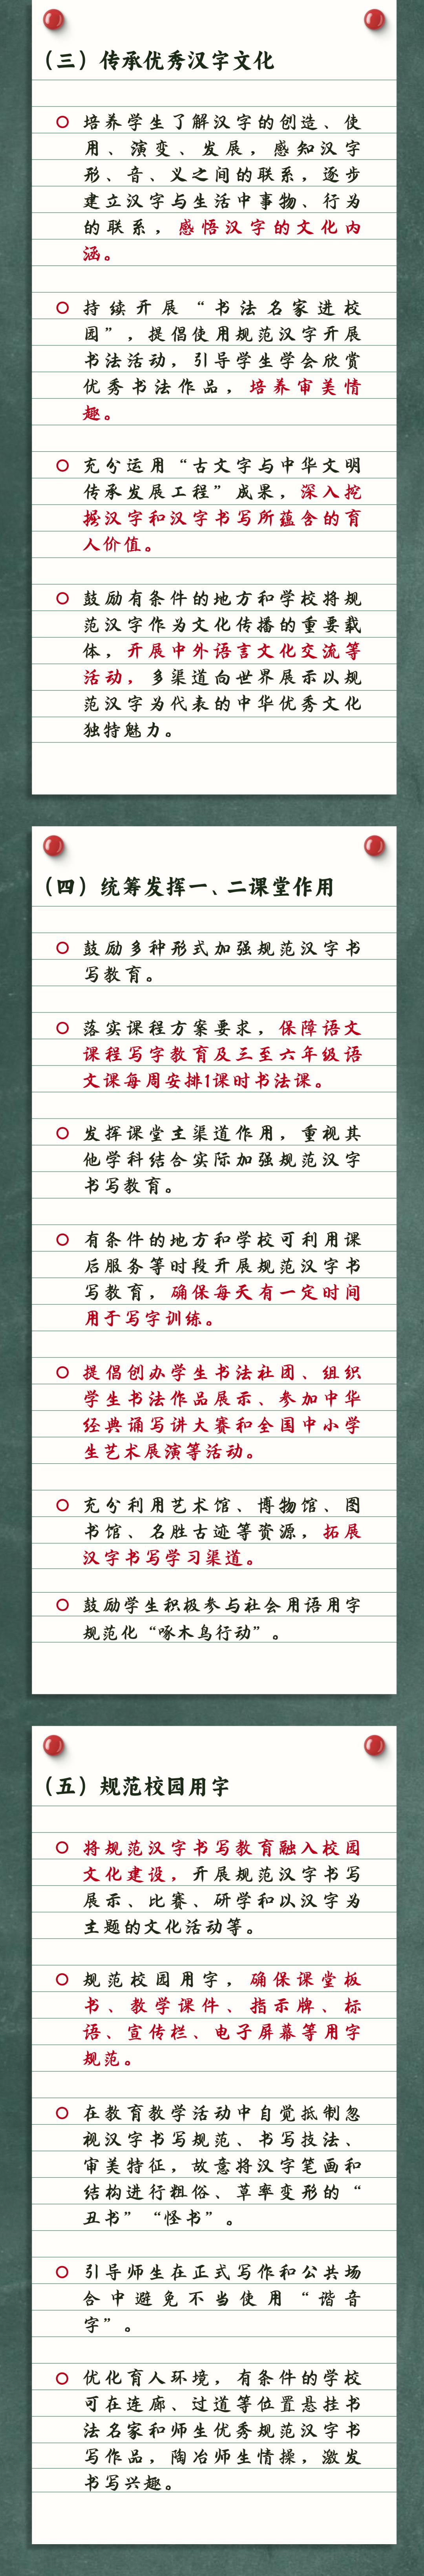 （三）传承优秀汉字文化
培养学生了解汉字的创造、使
用、演变、发展，感知汉字
形、音、义之间的联系，逐步
建立汉字与生活中事物、行为
的联系，感悟汉字的文化内
涵。
持续开展“书法名家进校
园”，提倡使用规范汉字开展
书法活动，引导学生学会欣赏
优秀书法作品，培养审美情
趣。
充分运用“古文字与中华文明
传承发展工程”成果，深入挖
掘汉字和汉字书写所蕴含的育
人价值。
鼓励有条件的地方和学校将规
范汉字作为文化传播的重要载
体，开展中外语言文化交流等
活动，多渠道向世界展示以规
范汉字为代表的中华优秀文化
独特魅力。
（四）统筹发挥一、二课堂作用
鼓励多种形式加强规范汉字书
写教育。
落实课程方案要求，保障语文
课程写字教育及三至六年级语
文课每周安排1课时书法课。
发挥课堂主渠道作用，重视其
他学科结合实际加强规范汉字
书写教育。
有条件的地方和学校可利用课
后服务等时段开展规范汉字书
写教育，确保每天有一定时间
用于写字训练。
提倡创办学生书法社团、组织
学生书法作品展示、参加中华
经典诵写讲大赛和全国中小学
生艺术展演等活动。
充分利用艺术馆、博物馆、图
书馆、名胜古迹等资源，拓展
汉字书写学习渠道。
鼓励学生积极参与社会用语用字
规范化“啄木鸟行动”。
（五）规范校园用字
将规范汉字书写教育融入校园
文化建设，开展规范汉字书写
展示、比赛、研学和以汉字为
主题的文化活动等。
规范校园用字，确保课堂板
书、教学课件、指示牌、标
语、宣传栏、电子屏幕等用字
规范。
在教育教学活动中自觉抵制忽
视汉字书写规范、书写技法、
审美特征，故意将汉字笔画和
结构进行粗俗、草率变形的“
丑书”“怪书”。
引导师生在正式写作和公共场
合中避免不当使用“谐音
字”。
优化育人环境，有条件的学校
可在连廊、过道等位置悬挂书
法名家和师生优秀规范汉字书
写作品，陶冶师生情操，激发
书写兴趣。